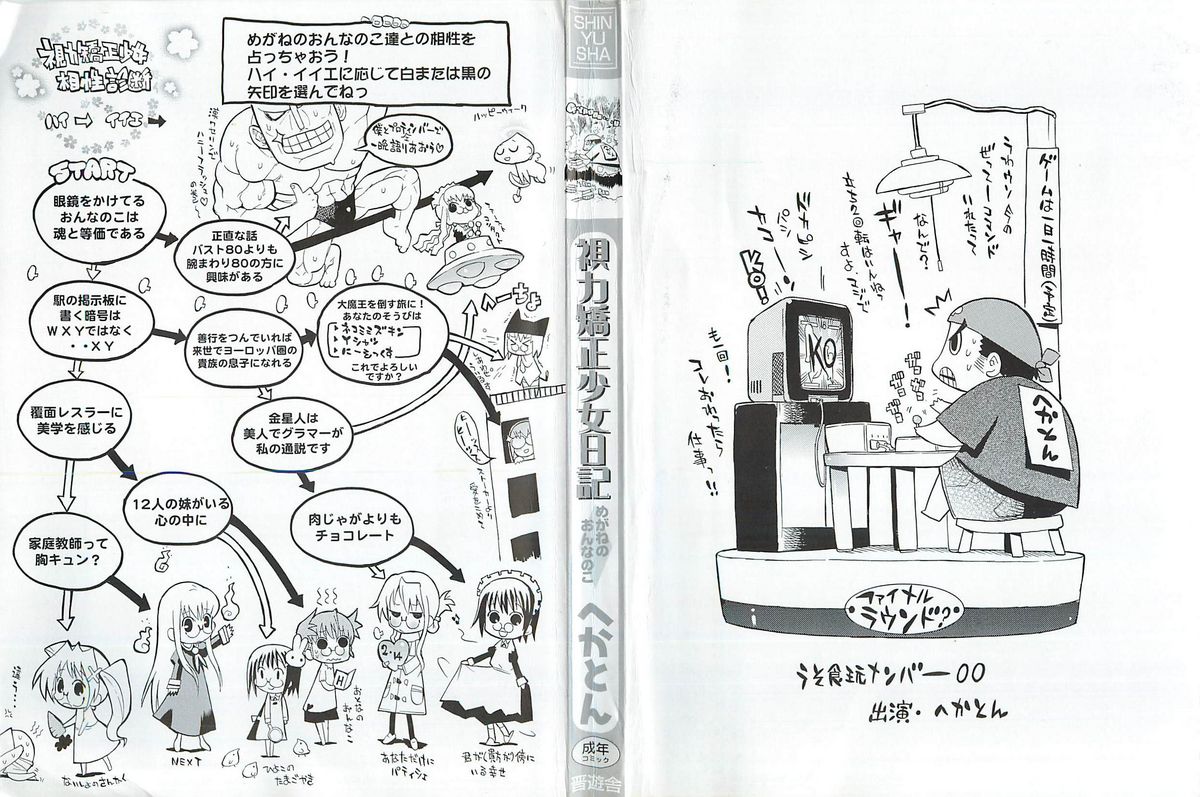 視力矯正少女
相性診断
ハイ→ イイエ→
START
めがねのおんなのこ達との相性を
占っちゃおう!
ハイ・イイエに応じて白または黒の
矢印を選んでねっ
眼鏡をかけてる
おんなのこは
魂と等価である
正直な話
バスト80よりも
腕まわり80の方に
興味がある
僕とプロテインバーで
一晩語りあおう♡
ハッピーウィーク
駅の掲示板に
書く暗号は
WXYではなく
・・XY
善行をつんでいれば
来世でヨーロッパ圏の
貴族の息子になれる
大魔王を倒す旅に!
あなたのそうびは
ネコミミズキン
Yシャツ
にーそっくす
これでよろしい
ですか?
覆面レスラーに
美学を感じる
金星人は
美人でグラマーが
私の通説です
12人の妹がいる
心の中に
肉じゃがよりも
チョコレート
家庭教師って
胸キュン?
ないしょのさんかく
NEXT
ひよこの
たまごやき
おとなの
おんなのこ
2・14
H
あなただけに
パティシエ
君が(貴方が)傍に
いる幸せ
SHIN
YU
SHA
視力矯正少女日記
めがねの
おんなのこ
へかとん
成年
コミック
晋遊舎
ゲームは一日一時間(予定)
なんで?
ギャーー!
KO!
KO
も一回!
コレおわったら
仕事っ!!
へかとん
ファイナル
ラウンド?
うそ食玩メンバー00
出演・へかとん